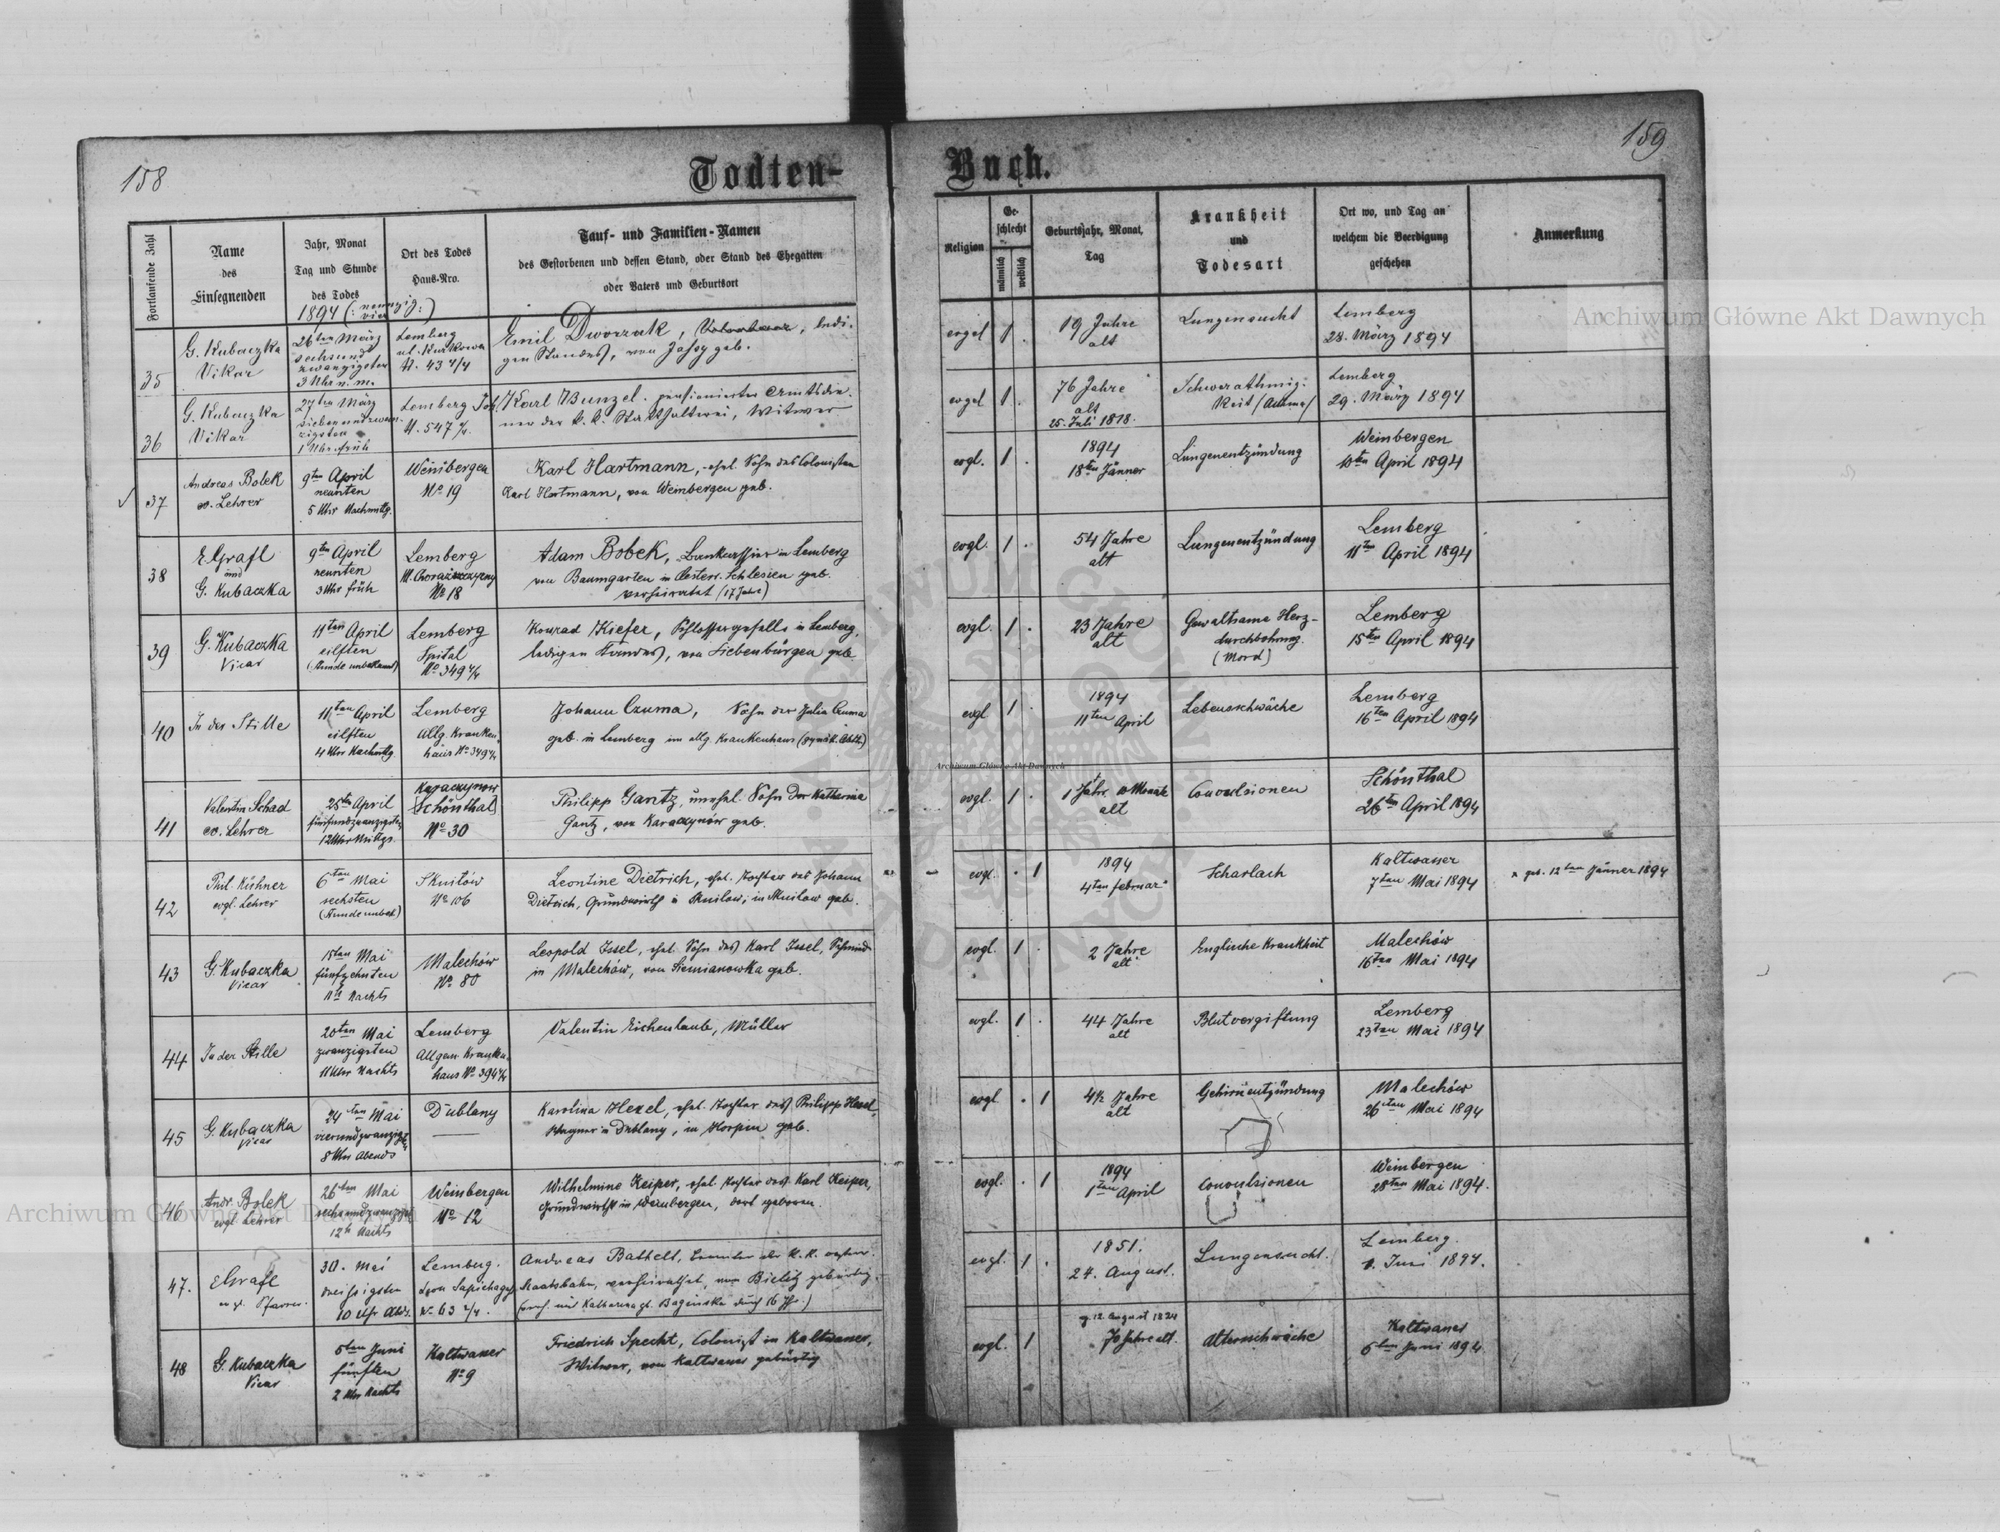 158
159
Todten-
Buch.
Fortlaufende Zahl
Name
des
Einsegnenden
Jahr, Monat
Tag und Stunde
des Todes
Ort des Todes
Haus-Nro.
Tauf- und Familien-Namen
des Gestorbenen und dessen Stand, oder Stand des Ehegatten
oder Vaters und Geburtsort
Religion
Ge-
schlecht
männlich
weiblich
Geburtsjahr, Monat,
Tag
Krankheit
und
Todesart
Ort wo, und Tag an
welchem die Beerdigung
geschehen
Anmerkung
1894 (: neunzig:)
vier
35
G. Kubaczka
Vikar
26ten März
sechsund
zwanzigsten
3 Uhr n. m.
Lemberg
ul. Kurkowa
N. 43 4/4
Emil Dworzak, ledi-
gen Standes, von Jassy geb.
evgel 1 .
19 Jahre
alt
Lungensucht
Lemberg
28. März 1894
36
G. Kubaczka
Vikar
27ten März
siebenundzwan
zigsten
1 Uhr früh
Lemberg
N. 547 4/4
Karl Bunzel, pensionierter Amtsdie-
ner der k. k. Statthalterei, Witwer
evgel 1 .
76 Jahre
alt
25. Juli 1818.
Schwerathmig-
keit (Asthma)
Lemberg
29. März 1894
37
Andreas Bolek
ev. Lehrer
9ten April
neunten
5 Uhr Nachmttg.
Weinbergen
No 19
Karl Hartmann, ehel. Sohn des Colonisten
Karl Hartmann, von Weinbergen geb.
evgl. 1 .
1894
18ten Jänner
Lungenentzündung
Weinbergen
10ten April 1894
38
E Grafl
und
G. Kubaczka
9ten April
neunten
3 Uhr früh
Lemberg
Ul. Chorążczyzny
No 18
Adam Bobek, Bankcassier in Lemberg
von Baumgarten in Oesterr. Schlesien geb.
verheiratet (17 Jahre)
evgl. 1 .
54 Jahre
alt
Lungenentzündung
Lemberg
11ten April 1894
39
G. Kubaczka
Vicar
11ten April
eilften
(Stunde unbekannt)
Lemberg
Spital
No 349 4/4
Konrad Kiefer, Schlossergeselle in Lemberg,
ledigen Standes, von Siebenbürgen geb.
evgl. 1 .
23 Jahre
alt
Gewaltsame Herz-
durchbohrung.
(Mord)
Lemberg
15ten April 1894
40
In der Stille
11ten April
eilften
4 Uhr Nachmttg.
Lemberg
Allg. Kranken-
haus No 349 4/4
Johann Czuma, Sohn der Julia Czuma
geb. in Lemberg im allg. Krankenhaus
evgl 1 .
1894
11ten April
Lebensschwäche
Lemberg
16ten April 1894
41
Valentin Schad
ev. Lehrer
25ten April
fünfundzwanzigsten
12 Uhr Mittgs.
Karaczynow
Schönthal
No 30
Philipp Gantz, unehel. Sohn der Katharina
Gantz, von Karaczynów geb.
evgl. 1 .
1 Jahr 10 Monate
alt
Convulsionen
Schönthal
26ten April 1894
42
Phil. Kühner
evgl. Lehrer
6ten Mai
sechsten
(Stunde unbek)
Sknilów
No 106
Leontine Dietrich, ehel. Tochter des Johann
Dietrich, Grundwirth in Sknilow, in Sknilow geb.
evgl. . 1
1894
4ten februar
Scharlach
Kaltwasser
7ten Mai 1894
x geb. 12ten Jänner 1894
43
G. Kubaczka
Vicar
15ten Mai
fünfzehnten
11h Nachts
Malechów
No 80
Leopold Issel, ehel. Sohn des Karl Issel, Schmied
in Malechów, von Siemianowka geb.
evgl. 1 .
2 Jahre
alt
Englische Krankheit
Malechów
16ten Mai 1894
44
In der Stille
20ten Mai
zwanzigsten
11 Uhr Nachts
Lemberg
Allgem. Kranken-
haus No 394 4/4
Valentin Eichenlaub, Müller
evgl. 1 .
44 Jahre
alt
Blutvergiftung
Lemberg
23ten Mai 1894
45
G. Kubaczka
Vicar
24ten Mai
vierundzwanzigsten
8 Uhr Abends
Dublany
Karolina Hexel, ehel. Tochter des Philipp Hexel,
Wagner in Dublany, in Horpin geb.
evgl. . 1
4½ Jahre
alt
Gehirnentzündung
Malechów
26ten Mai 1894
46
Andr. Bolek
evgl. Lehrer
26ten Mai
sechsundzwanzigsten
12h Nachts
Weinbergen
No 12
Wilhelmine Keiper, ehel. Tochter des Karl Keiper,
Grundwirth in Weinbergen, dort geboren.
evgl. . 1
1894
1ten April
Convulsionen
Weinbergen
28ten Mai 1894.
47.
E Grafl
ev. Pfarrer.
30. Mai
dreissigsten
10 Uhr Abds.
Lemberg.
Leon Sapiehagasse
No 63 2/4.
Andreas Bathelt, Beamter der k. k. österr.
Staatsbahn, verheirathet, von Bielitz gebürtig.
evgl. 1 .
1851.
24. August.
Lungensucht.
Lemberg.
1. Juni 1894.
48
G. Kubaczka
Vicar
5ten Juni
fünften
2 Uhr Nachts
Kaltwasser
No 9
Friedrich Specht, Colonist in Kaltwasser,
Witwer, von Kaltwasser gebürtig
evgl. 1
g. 12. August 1824
70 Jahre alt.
Altersschwäche
Kaltwasser
6ten Juni 1894
Archiwum Główne Akt Dawnych
Archiwum Główne Akt Dawnych
Archiwum Główne Akt Dawnych